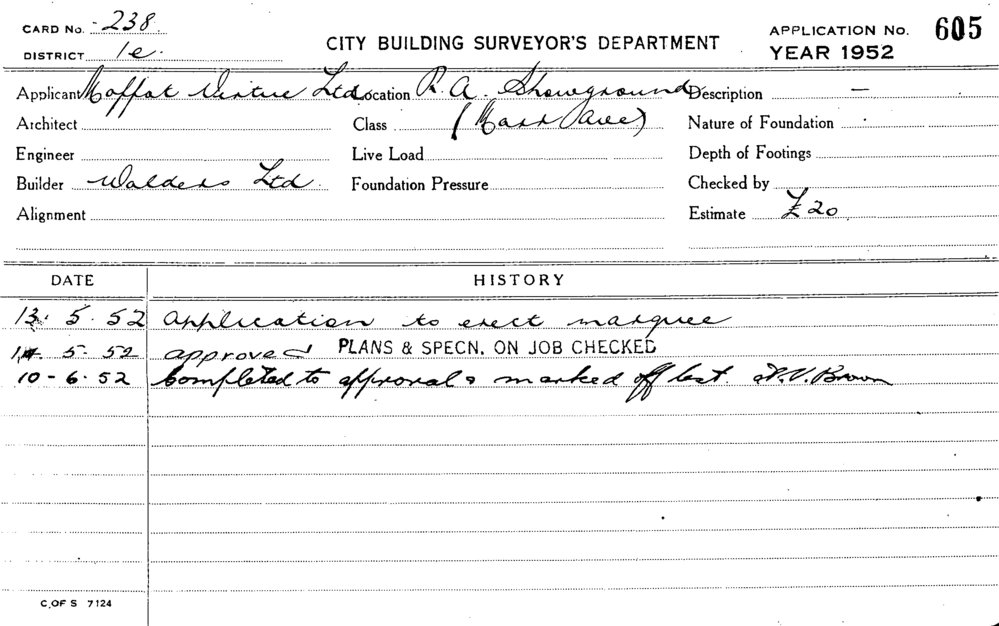 CARD No. 238.
DISTRICT 1e.
CITY BUILDING SURVEYOR'S DEPARTMENT
APPLICATION No. 605
YEAR 1952
Applicant Moffat Virtue Ltd Location R.A. Showground Description —
Architect Class (Mark Ave) Nature of Foundation
Engineer Live Load Depth of Footings
Builder Walders Ltd. Foundation Pressure Checked by
Alignment Estimate £20
DATE HISTORY
13. 5. 52 Application to erect marquee
14. 5. 52 approved PLANS & SPECN. ON JOB CHECKED
10-6-52 Completed to approval & marked off last. Brown
C OF S 7124